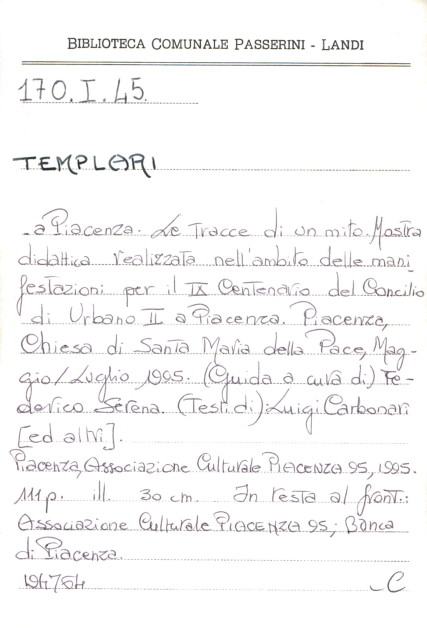 BIBLIOTECA COMUNALE PASSERINI - LANDI
170.I.45.
TEMPLARI
- a Piacenza. Le Tracce di un mito. Mostra
didattica realizzata nell'ambito delle mani
festazioni per il IX Centenario del Concilio
di Urbano II a Piacenza. Piacenza,
Chiesa di Santa Maria della Pace, Mag-
gio/Luglio, 1995. (Guida a cura di) Fe-
derico Serena. (Testi di): Luigi Carbonari
[ed altri].
Piacenza, Associazione Culturale PIACENZA 95, 1995.
111 p. ill. 30 cm. In testa al front.:
Associazione Culturale PIACENZA 95; Banca
di Piacenza.
194764 -C